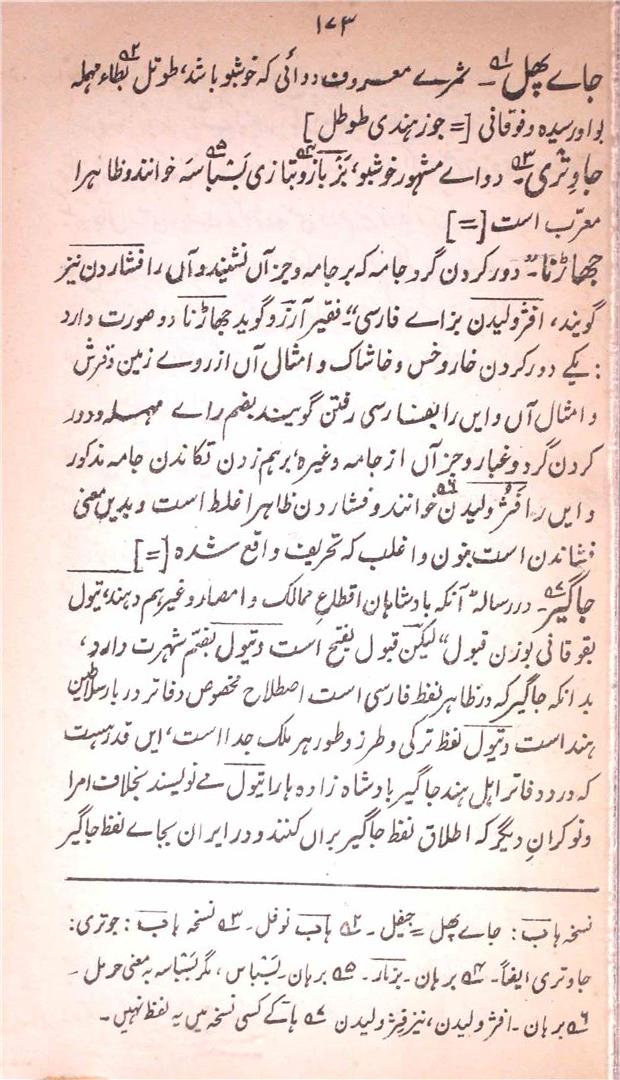 ۱۷۳
جاے پھل۱؎۔ ثمرے معروف دوائی کہ خوشبو باشد، طوتل۲؎ بطاء مہملہ
بواو رسیدہ و فوقانی [= جوز ہندی طوطل]
جاوتری۳؎۔ دواے مشہور خوشبو، بزباز۴؎ و بتازی بَسْباسَہ۵؎ خوانند و ظاہرا
معرّب است [=]
جھاڑنا۔ ”دور کردن گرد جامہ کہ بر جامہ و جز آں نشیند و آں را فشاردن نیز
گویند، افژولیدن بزاے فارسی“۔ فقیر آرزو گوید جھاڑنا دو صورت دارد
: یکے دور کردن خار و خس و خاشاک و امثال آں از روے زمین و فرش
و امثال آں و ایں را بفارسی رفتن گویند بضم راے مہملہ و دور
کردن گرد و غبار و جز آں از جامہ وغیرہ، برہم زدن تکاندن جامہ مذکور
و ایں را فژولیدن۶؎ خوانند و فشاردن ظاہرا غلط است و بدیں معنی
فشاندن است بنون و اغلب کہ تحریف واقع شدہ [=]
جاگیر۷؎۔ در رسالہ ”آنکہ بادشاہاں اقطاع ممالک و امصار وغیرہم دہند، تیول
بفوقانی بوزن قبول“ لیکن قبول بفتح است و تیول بضم شہرت دارد،
بدانکہ جاگیر کہ در ظاہر لفظ فارسی است اصطلاح مخصوص دفاتر دربار سلاطین
ہند است و تیول لفظ ترکی و طرز و طور ہر ملک جدا است، ایں قدر ہست
کہ در دفاتر اہل ہند جاگیر بادشاہ زادہ ہا را تیول مے نویسند بخلاف امرا
و نوکران دیگر کہ اطلاق لفظ جاگیر براں کنند و در ایران بجاے لفظ جاگیر
نسخہ ہاب: جاے پھل = جیفل۔ ۲؎ ہاب نوفل۔ ۳؎ نسخہ ہاب: جوتری:
جاوتری ایضاً۔ ۴؎ برہان۔ بزبار۔ ۵؎ برہان۔ بَسْباس، مگر بَسْباسہ بہ معنی حرمل۔
۶؎ برہان۔ افژولیدن، نیز فژولیدن ۷؎ ہا کے کسی نسخہ میں یہ لفظ نہیں۔